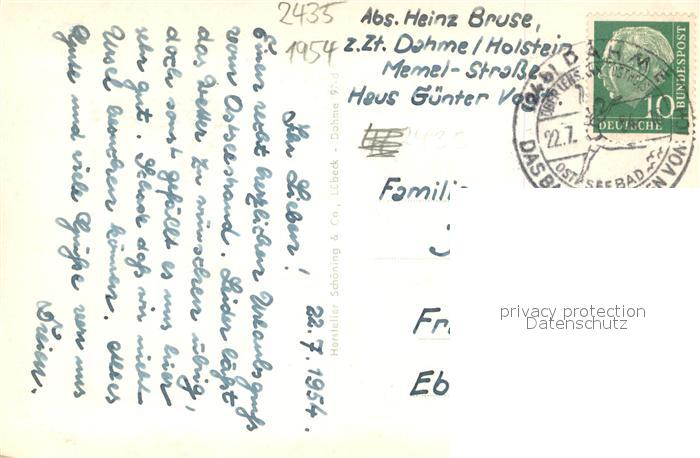 2435
1954
Abs. Heinz Bruse,
z.Zt. Dahme/Holstein
Memel-Straße
Haus Günter
10
DEUTSCHE
BUNDESPOST
DAHME
22.7.
OSTSEEBAD
DAS
VON
2435
Familie
Fr
Eb
privacy protection
Datenschutz
Hersteller Schöning & Co., Lübeck - Dahme
22.7.1954.
Ihr Lieben!
Einen recht herzlichen Urlaubsgruß
vom Ostseestrand. Leider läßt
das Wetter zu wünschen übrig,
doch sonst gefällt es uns hier
sehr gut. Schade daß wir nicht
Usel besuchen können. Alles
Gute und viele Grüße von uns
Dreien.